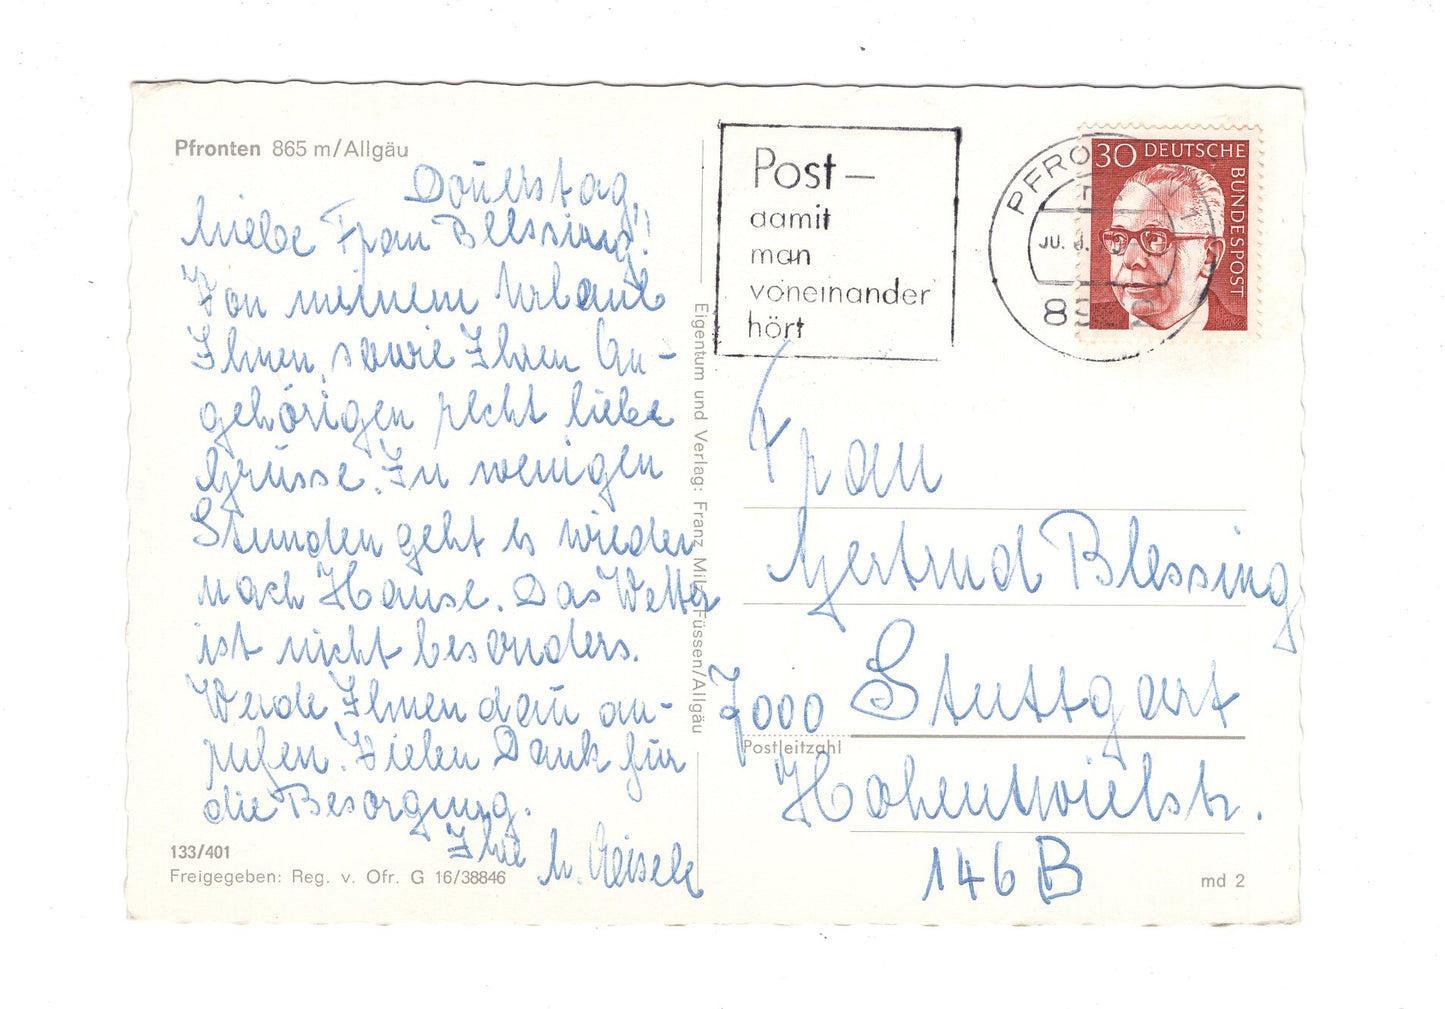 Pfronten 865 m/Allgäu
Donnerstag,
Liebe Frau Blessing!
Von meinem Urlaub
Ihnen, sowie Ihren An-
gehörigen recht liebe
Grüsse. In wenigen
Stunden geht es wieder
nach Hause. Das Wetter
ist nicht besonders.
Werde Ihnen dann an-
rufen. Vielen Dank für
die Besorgung.
Ihre
133/401
Freigegeben: Reg. v. Ofr. G 16/38846
Eigentum und Verlag: Franz Milz, Füssen/Allgäu
Post –
damit
man
voneinander
hört
30 DEUTSCHE
BUNDESPOST
Frau
Gertrud Blessing
7000 Stuttgart
Postleitzahl
Hohentwielstr.
146 B
md 2